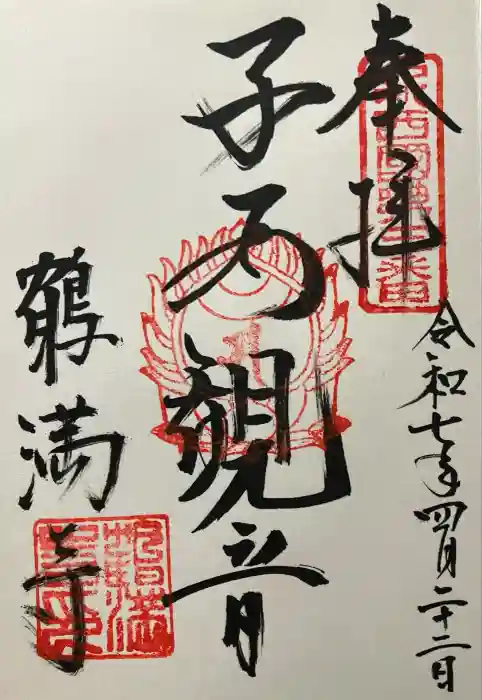 奉拝
令和七年四月二十二日
子安観音
鶴満寺